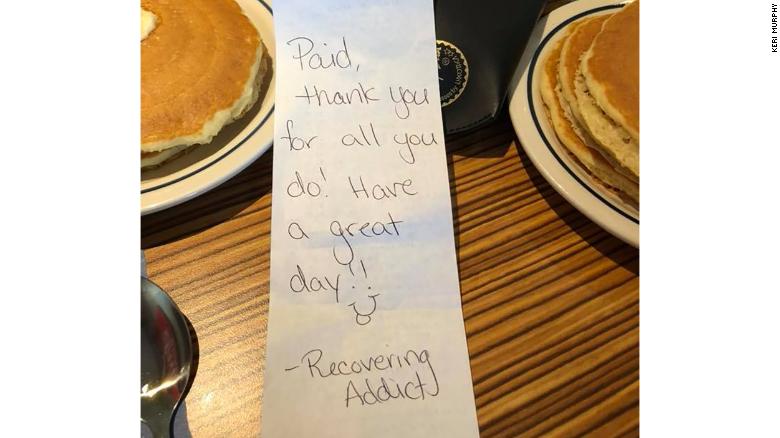 Paid,
thank you
for all you
do! Have
a great
day!!
-Recovering
Addict
KERI MURPHY